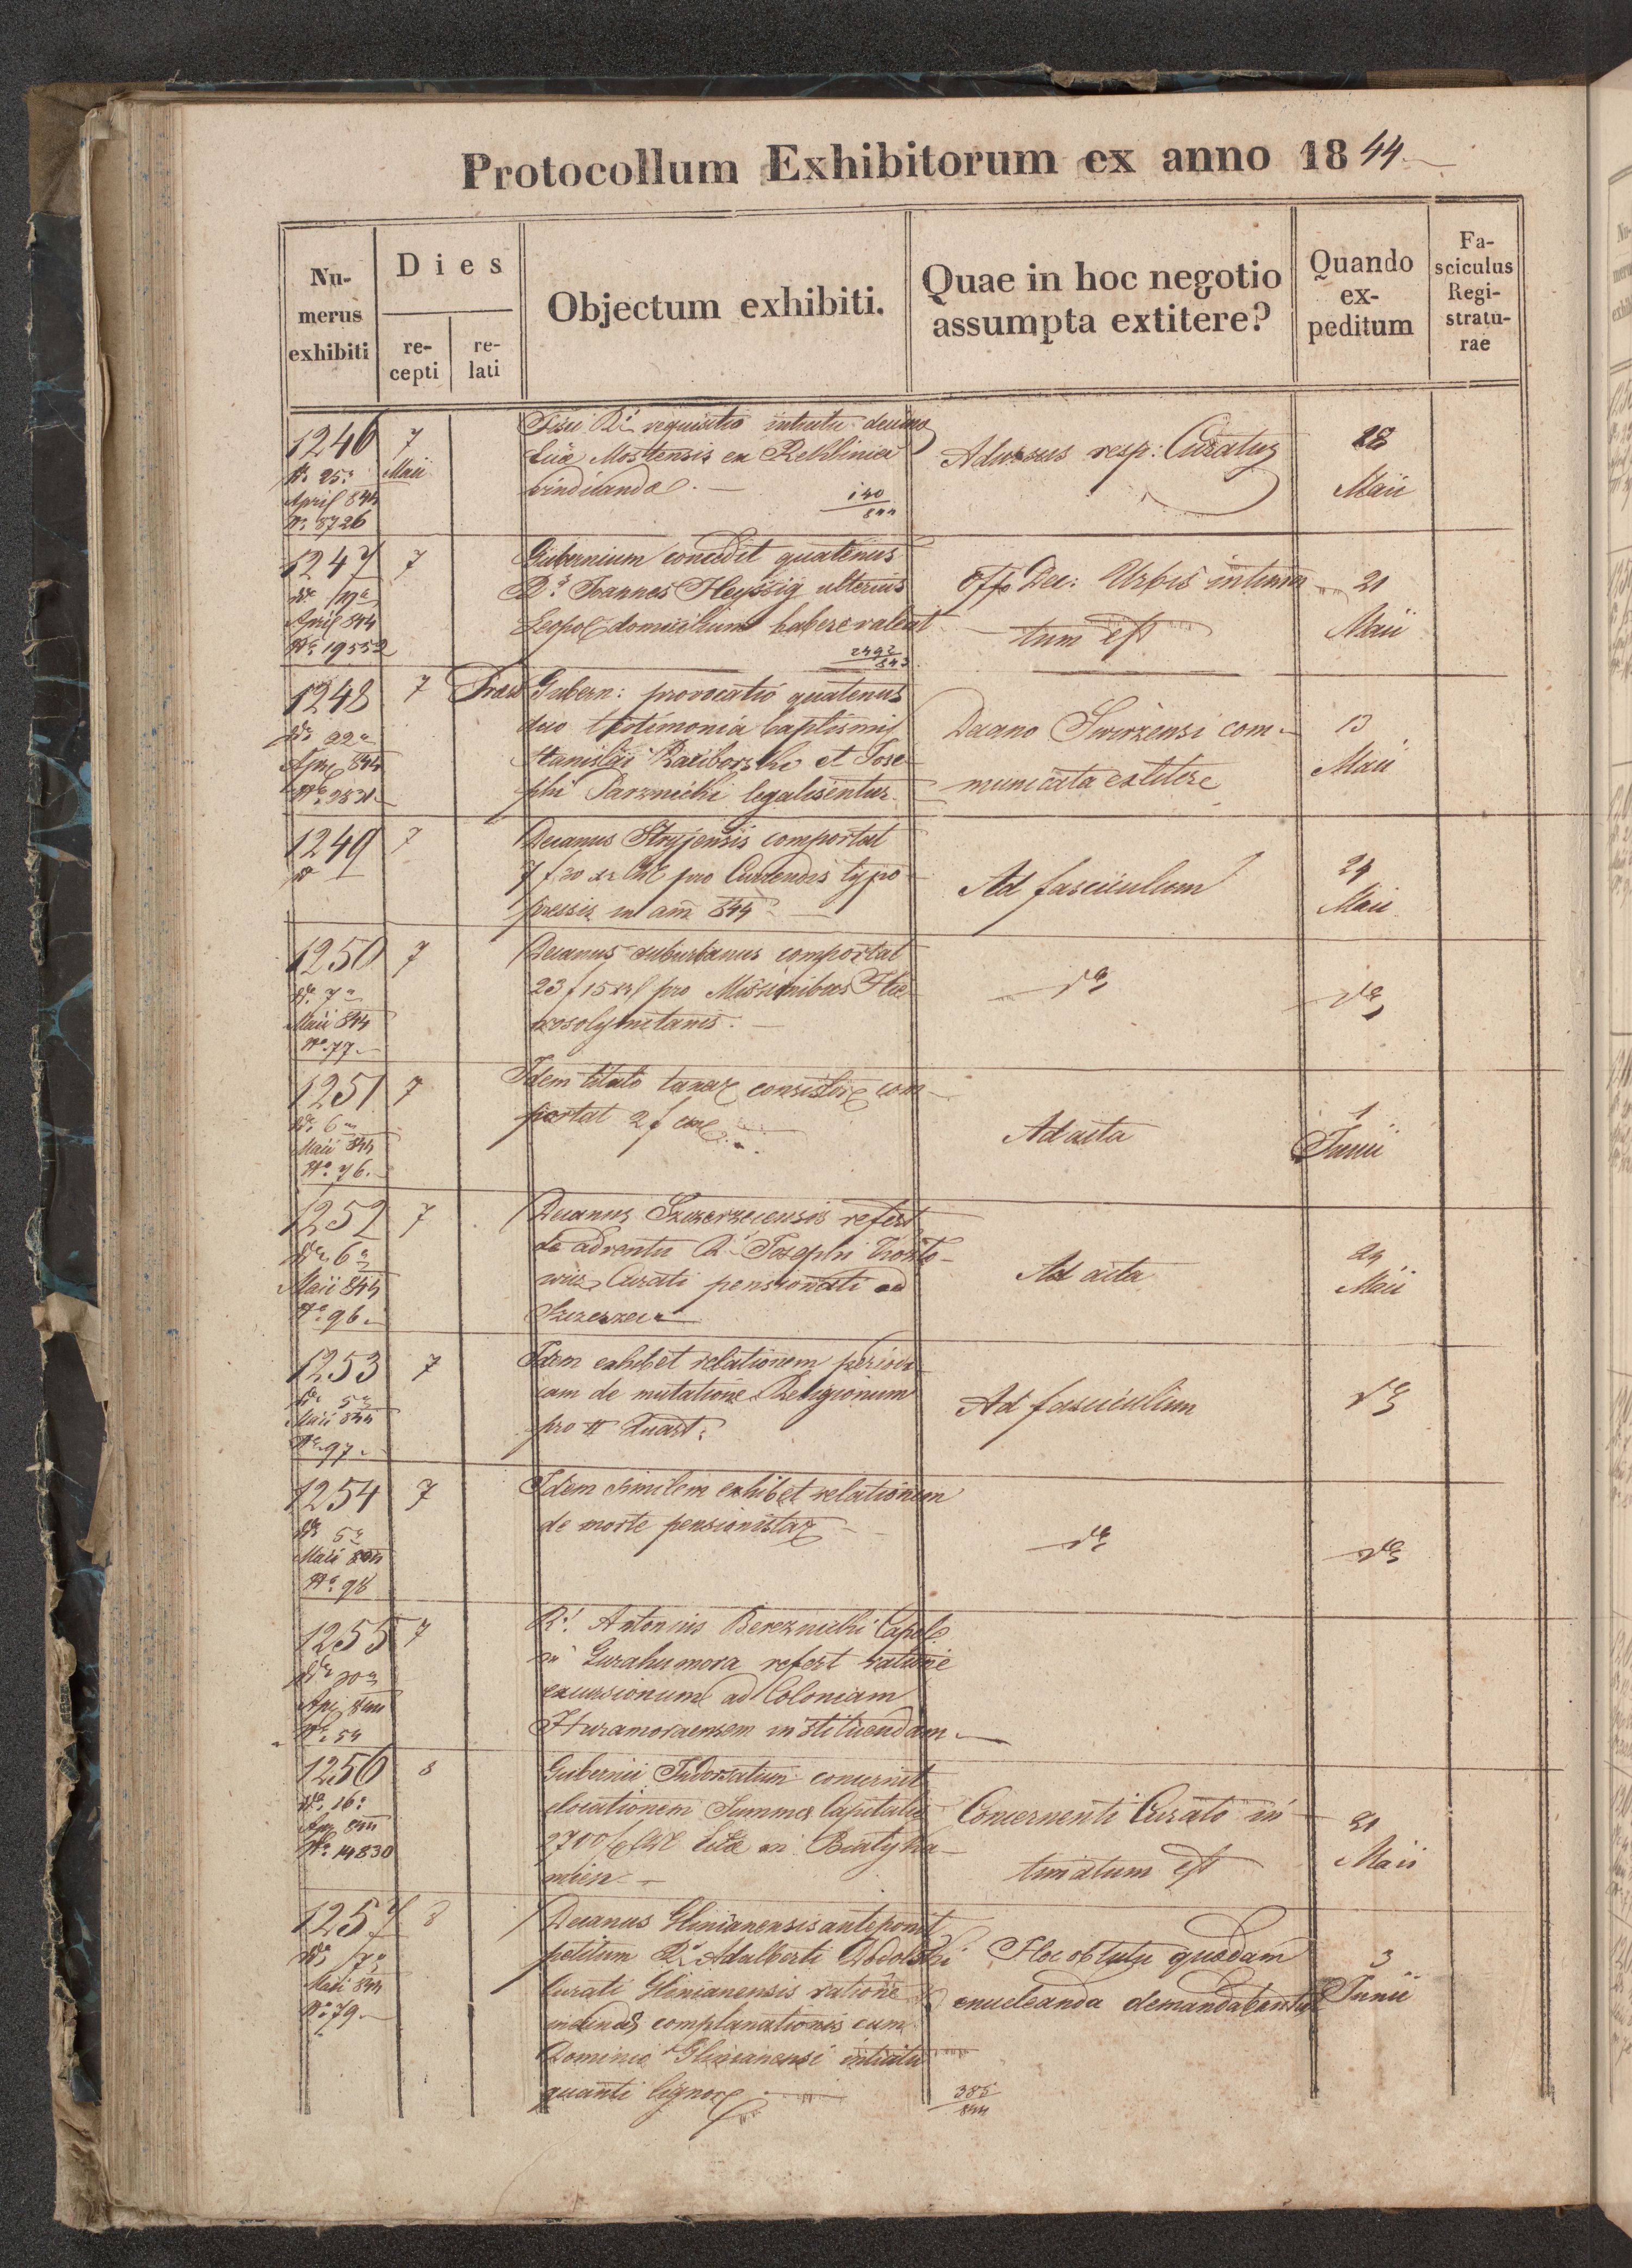 Protocollum Exhibitorum ex anno 1844
Numerus exhibiti
Dies
recepti
relati
Objectum exhibiti.
Quae in hoc negotio assumpta extitere?
Quando expeditum
Fasciculus Registraturae
1246
7 Maii
25
April 844
Nº 8726
requisitio intuitu
Mostensis ex
vindicanda
140/844
resp: Curatus
28
Maii
1247
7
April 844
Nº 19552
Gubernium concedit quatenus
Rs Joannes Heyssig ulterius
Leopol domicilium habere valeat
2492/843
Off Dec: Urbis intima
tum est
21
Maii
1248
7
22a
Apr 844
Gubern: provocatio quatenus
duo testimonia baptismi
Stanislai Raciborski et Jose
phi Sarznicki legalisentur
Decano Swirzensi com-
municata extitere
13
Maii
1249
7
Decanus Stryjensis comportat
7 f 30 xr CM pro Currendis typo
pressis in an 844
Ad fasciculum
24
Maii
1250
7
dto 7a
Maii 844
Nº 77
Decanus suburbanus comportat
23 f 15 xr pro Missionibus Hie
rosolymitanis.
dto
dto
1251
7
dto 6a
Maii 844
Nº 76.
Idem titulo taxae consistor com-
portat 2 f
Ad acta
1
Junii
1252
7
dto 6a
Maii 844
Nº 96
Decanus Szczerzecensis refert
de adventu Rdi Josephi
wicz Curati pensionati ad
Szczerzec
Ad acta
24
Maii
1253
7
dto 5a
Maii 844
Nº 97
Idem exhibet relationem periodi
cam de mutatione Religionum
pro II Quart:
Ad fasciculum
dto
1254
7
dto 5a
Maii 844
Nº 98
Idem similem exhibet relationem
de morte pensionistar
dto
dto
1255
7
Apr 844
Nº 54
Rd. Antonius Bereznicki Capel
in Gurahumora refert ratione
excursionum ad Coloniam
Huramoraensem instituendam
1256
8
dto 16
Apr 844
Nº 14830
Gubernii Indorsatum concernit
elocationem Summa Capitalis
2700 f CM Eccla in Bialyka
mien
Concernenti Curato in
timatum est
31
Maii
1257
8
Maii 844
Nº 79
Decanus Glinianensis anteponit
petitum Rdi Adalberti Podolski
Curati Glinianensis ratione
ineundae complanationis cum
Dominio Glinianensi intuitu
quanti lignor
385/844
Hoc obtutu quaedam
enucleanda demandabantur
3
Junii